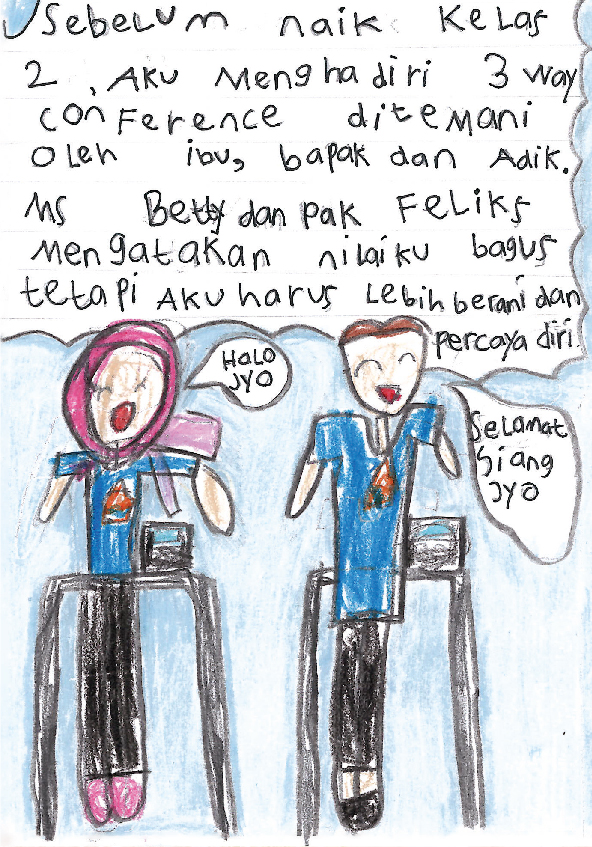 Sebelum naik Kelas
2, Aku Menghadiri 3 way
conference ditemani
oleh ibu, bapak dan Adik.
Ms Betty dan pak Feliks
Mengatakan nilaiku bagus
tetapi Aku harus Lebih berani dan
percaya diri.
Halo
Jyo
Selamat
Siang
Jyo